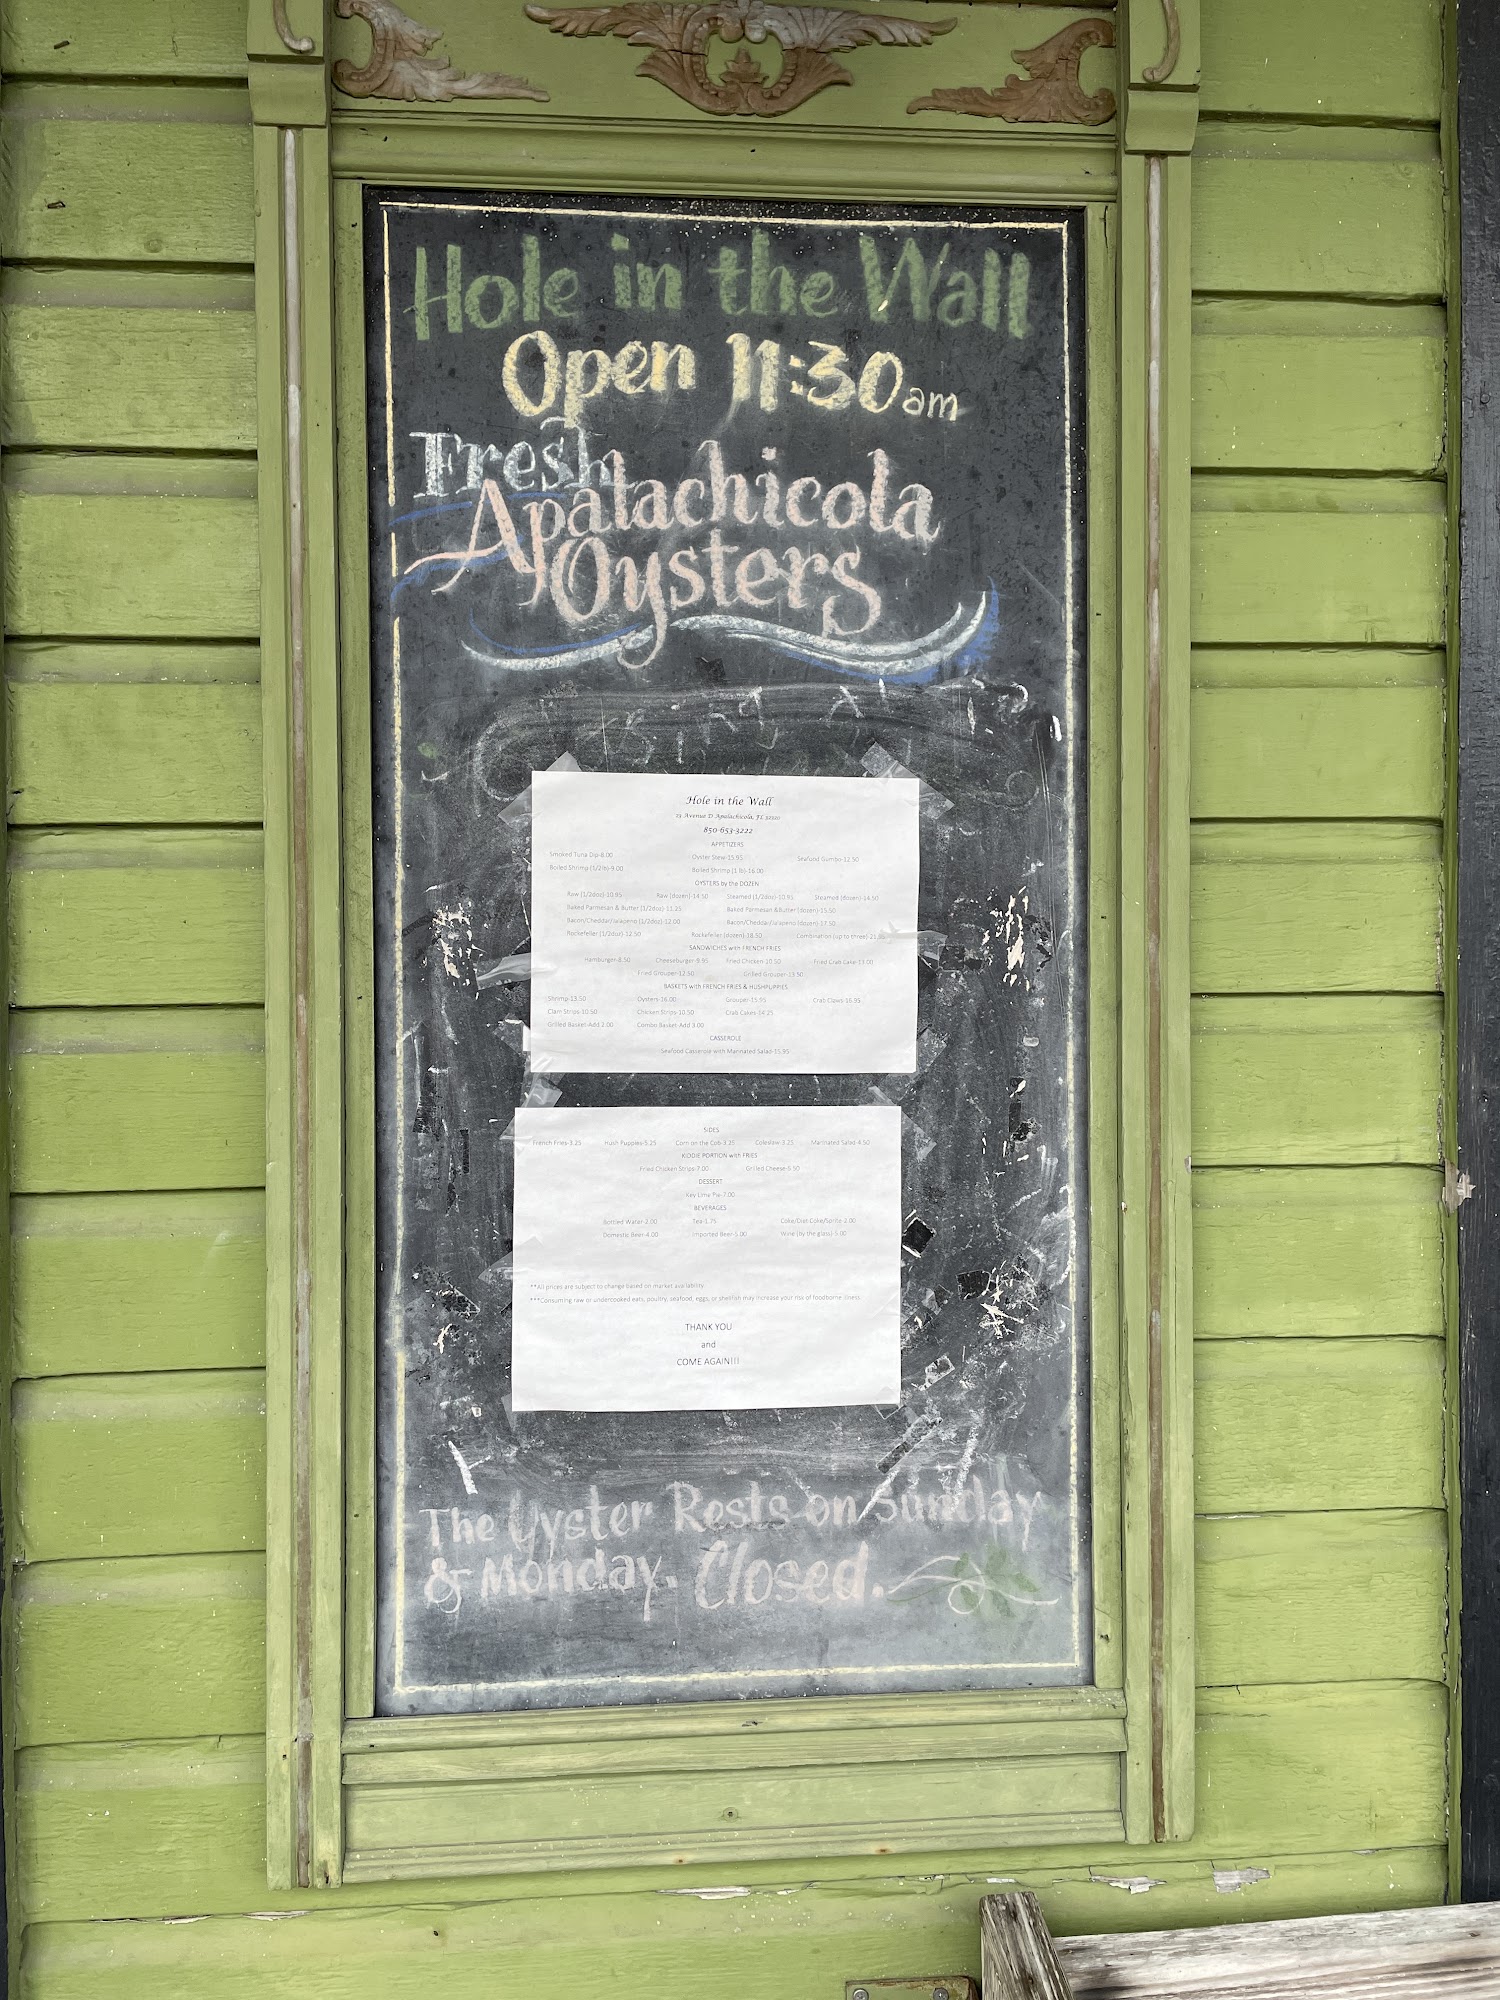 Hole in the Wall
Open 11:30am
Fresh
Apalachicola
Oysters
Hole in the Wall
23 Avenue D Apalachicola, FL 32320
850-653-3222
APPETIZERS
Smoked Tuna Dip-8.00 Oyster Stew-15.95 Seafood Gumbo-12.50
Boiled Shrimp (1/2lb)-9.00 Boiled Shrimp (1 lb)-16.00
OYSTERS by the DOZEN
Raw (1/2doz)-10.95 Raw (dozen)-14.50 Steamed (1/2doz)-10.95 Steamed (dozen)-14.50
Baked Parmesan & Butter (1/2doz)-11.25 Baked Parmesan &Butter (dozen)-15.50
Bacon/Cheddar/Jalapeno (1/2doz)-12.00 Bacon/Cheddar/Jalapeno (dozen)-17.50
Rockefeller (1/2doz)-12.50 Rockefeller (dozen)-18.50 Combination (up to three)
SANDWICHES with FRENCH FRIES
Hamburger-8.50 Cheeseburger-9.95 Fried Chicken-10.50 Fried Crab Cake-13.00
Fried Grouper-12.50 Grilled Grouper-13.50
BASKETS with FRENCH FRIES & HUSHPUPPIES
Shrimp-13.50 Oysters-16.00 Grouper-15.95 Crab Claws-16.95
Clam Strips-10.50 Chicken Strips-10.50 Crab Cakes-14.25
Grilled Basket-Add 2.00 Combo Basket-Add 3.00
CASSEROLE
Seafood Casserole with Marinated Salad-15.95
SIDES
French Fries-3.25 Hush Puppies-5.25 Corn on the Cob-3.25 Coleslaw-3.25 Marinated Salad-4.50
KIDDIE PORTION with FRIES
Fried Chicken Strips-7.00 Grilled Cheese-5.50
DESSERT
Key Lime Pie-7.00
BEVERAGES
Bottled Water-2.00 Tea-1.75 Coke/Diet Coke/Sprite-2.00
Domestic Beer-4.00 Imported Beer-5.00 Wine (by the glass)-5.00
**All prices are subject to change based on market availability
***Consuming raw or undercooked eats, poultry, seafood, eggs, or shellfish may increase your risk of foodborne illness.
THANK YOU
and
COME AGAIN!!!
The Oyster Rests on Sunday
& Monday. Closed.